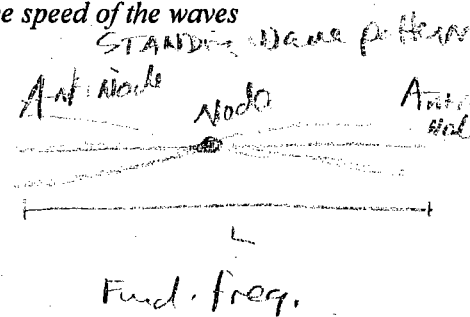 e speed of the waves
STANDing Wave pattern
AntiNode Node Anti
Nod
L
Fund. freq.